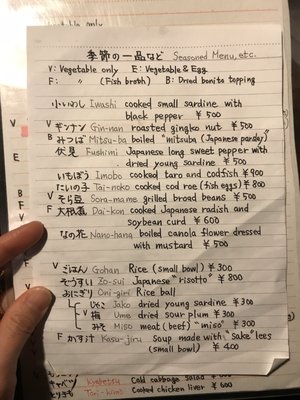 季節の一品など Seasoned Menu, etc.
V: Vegetable only E: Vegetable & Egg
F: 〃 (Fish broth) B: Dried bonito topping
小いわし Iwashi cooked small sardine with
black pepper ¥500
V ギンナン Gin-nan roasted gingko nut ¥500
B みつば Mitsu-ba boiled "mitsuba (Japanese parsley)" ¥500
伏見 Fushimi Japanese long sweet pepper with
dried young sardine ¥500
いもぼう Imobo cooked taro and codfish ¥900
たいの子 Tai-noko cooked cod roe (fish eggs) ¥800
V そら豆 Sora-mame grilled broad beans ¥500
F 大根煮 Dai-kon cooked Japanese radish and
soybean curd ¥600
なの花 Nano-hana boiled canola flower dressed
with mustard ¥500
V ごはん Gohan Rice (small bowl) ¥300
ぞうすい Zo-sui Japanese "risotto" ¥800
おにぎり Oni-giri Rice ball
じゃこ Jako dried young sardine ¥300
V 梅 Ume dried sour plum ¥300
みそ Miso meat (beef) "miso" ¥300
F かす汁 Kasu-jiru Soup made with "sake" lees
(small bowl) ¥400
キャベツ Kyabetsu Cold cabbage salad
Tori-kimo Cooked chicken liver ¥600